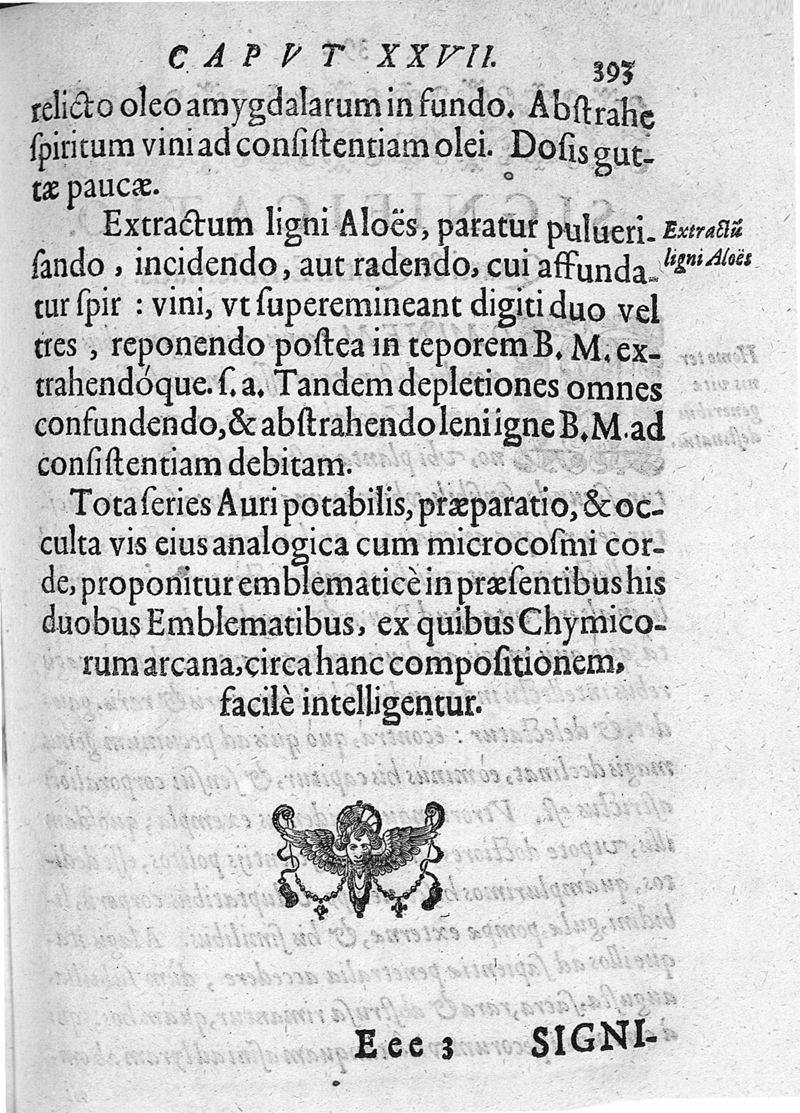 CAPVT XXVII.
393
relicto oleo amygdalarum in fundo. Abſtrahe
ſpiritum vini ad conſiſtentiam olei. Doſis gut-
tæ paucæ.
Extractum ligni Aloës, paratur pulueri-
Extractũ
ſando, incidendo, aut radendo, cui affunda-
ligni Aloës
tur ſpir: vini, vt ſuperemineant digiti duo vel
tres, reponendo poſtea in teporem B. M. ex-
trahendóque. ſ. a. Tandem depletiones omnes
confundendo, & abſtrahendo leni igne B. M. ad
conſiſtentiam debitam.
Tota ſeries Auri potabilis, præparatio, & oc-
culta vis eius analogica cum microcoſmi cor-
de, proponitur emblematicè in præſentibus his
duobus Emblematibus, ex quibus Chymico-
rum arcana, circa hanc compoſitionem,
facilè intelligentur.
Eee 3
SIGNI-